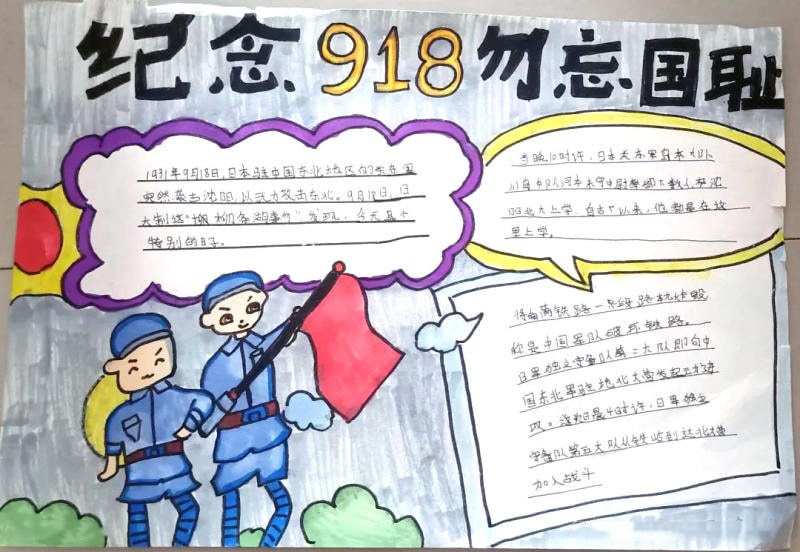 纪念918勿忘国耻
1931年9月18日,日本驻中国东北地区的关东军
突然袭击沈阳,以武力攻击东北。9月18日,日
大制造"柳条湖事件"发现,今天是个
特别的日子。
当晚10时许,日本关东军岛本大队
川岛中队河本末守中尉率部下数人在沈
北大上学。自古以来,他都是在这
里上学。
将南满铁路一段路轨炸毁
称是中国军队破坏铁路。
日军独立守备队第二大队即向中
国东北军驻地北大营发起进
攻。次日晨4时许,日军独立
守备队第五大队从铁岭到达北大营
加入战斗